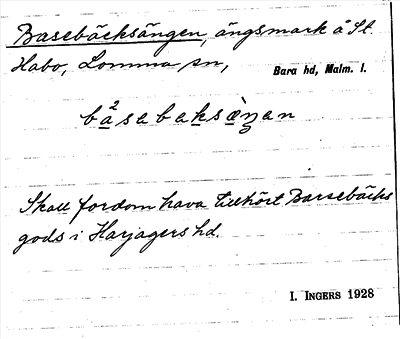 Basebäcksängen, ängsmark å St.
Habo, Lomma sn,
Bara hd, Malm. l.
ba²sabaksæ̀ŋan
Skall fordom hava tillhört Barsebäcks
gods i Harjagers hd.
I. INGERS 1928